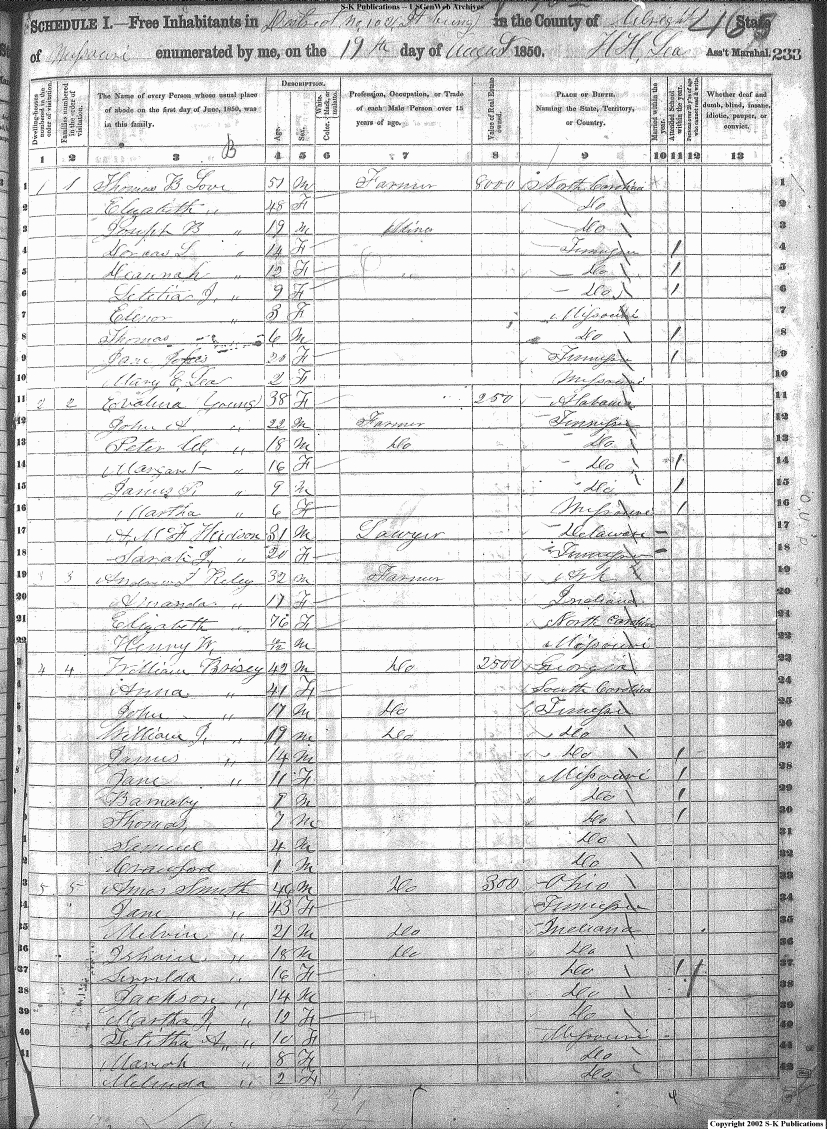 S-K Publications - USGenWeb Archives
SCHEDULE I.—Free Inhabitants in District No in the County of State
of Missouri enumerated by me, on the 19th day of August 1850. H H, Lea Ass't Marshal. 233
Dwelling-houses numbered in the order of visitation. Families numbered in the order of visitation. The Name of every Person whose usual place of abode on the first day of June, 1850, was in this family. DESCRIPTION. Age. Sex. Color, White, black, or mulatto. Profession, Occupation, or Trade of each Male Person over 15 years of age. Value of Real Estate owned. PLACE OF BIRTH. Naming the State, Territory, or Country. Married within the year. Attended School within the year. Persons over 20 y'rs of age who cannot read & write. Whether deaf and dumb, blind, insane, idiotic, pauper, or convict.
B
1 2 3 4 5 6 7 8 9 10 11 12 13
1 1 1 Thomas B Love 51 M Farmer 8000 North Carolina 1
2 Elizabeth " 48 F Do 2
3 Joseph B " 19 M Do 3
4 Dorcas L " 14 F Tennessee / 4
5 " 12 F " Do / 5
6 Letetia J, " 9 F Do / 6
7 Elenor " 3 F Missouri 7
8 Thomas 6 M Do / 8
9 Jane 20 F Tennessee / 9
10 Mary E, Lea 2 F Missouri 10
11 2 2 Evalina Young 38 F 250 Alabama 11
12 John A " 22 M Farmer Tennessee 12
13 Peter " 18 M Do Do 13
14 Margaret " 16 F Do / 14
15 James P. " 9 M Do / 15
16 Martha " 6 F Missouri / 16
17 A McF Hudson 31 M Lawyer Delaware - 17
18 Sarah J, " 20 F Tennessee - 18
19 3 3 Andrew J Kiley 32 M Farmer 19
20 Amanda " 17 F Indiana 20
21 Elizabeth " 76 F North Carolina 21
22 Henry W, M Missouri 22
4 4 William Brisey 42 M Do 2500 Georgia 23
24 Anna " 41 F South Carolina 24
25 John " 17 M Do Tennessee 25
26 William J, " 19 M Do Do 26
27 James " 14 M Do / 27
28 Jane " 11 F Missouri / 28
29 Barnaby 9 M Do / 29
30 Thomas, 7 M Do / 30
31 Samuel 4 M Do 31
Crawford 1 M Do 32
33 5 5 Amos Smith 46 M Do 300 Ohio 33
34 Jane " 43 F Tennessee 34
35 Melvin " 21 M Do Indiana 35
36 Isham " 18 M Do Do 36
37 " 16 F Do / 37
38 Jackson " 14 M Do 38
39 Martha J, " 12 F Do 39
40 A, " 10 F Missouri 40
41 Mariah " 8 F Do
Melinda " 2 F Do 42
Copyright 2002 S-K Publications